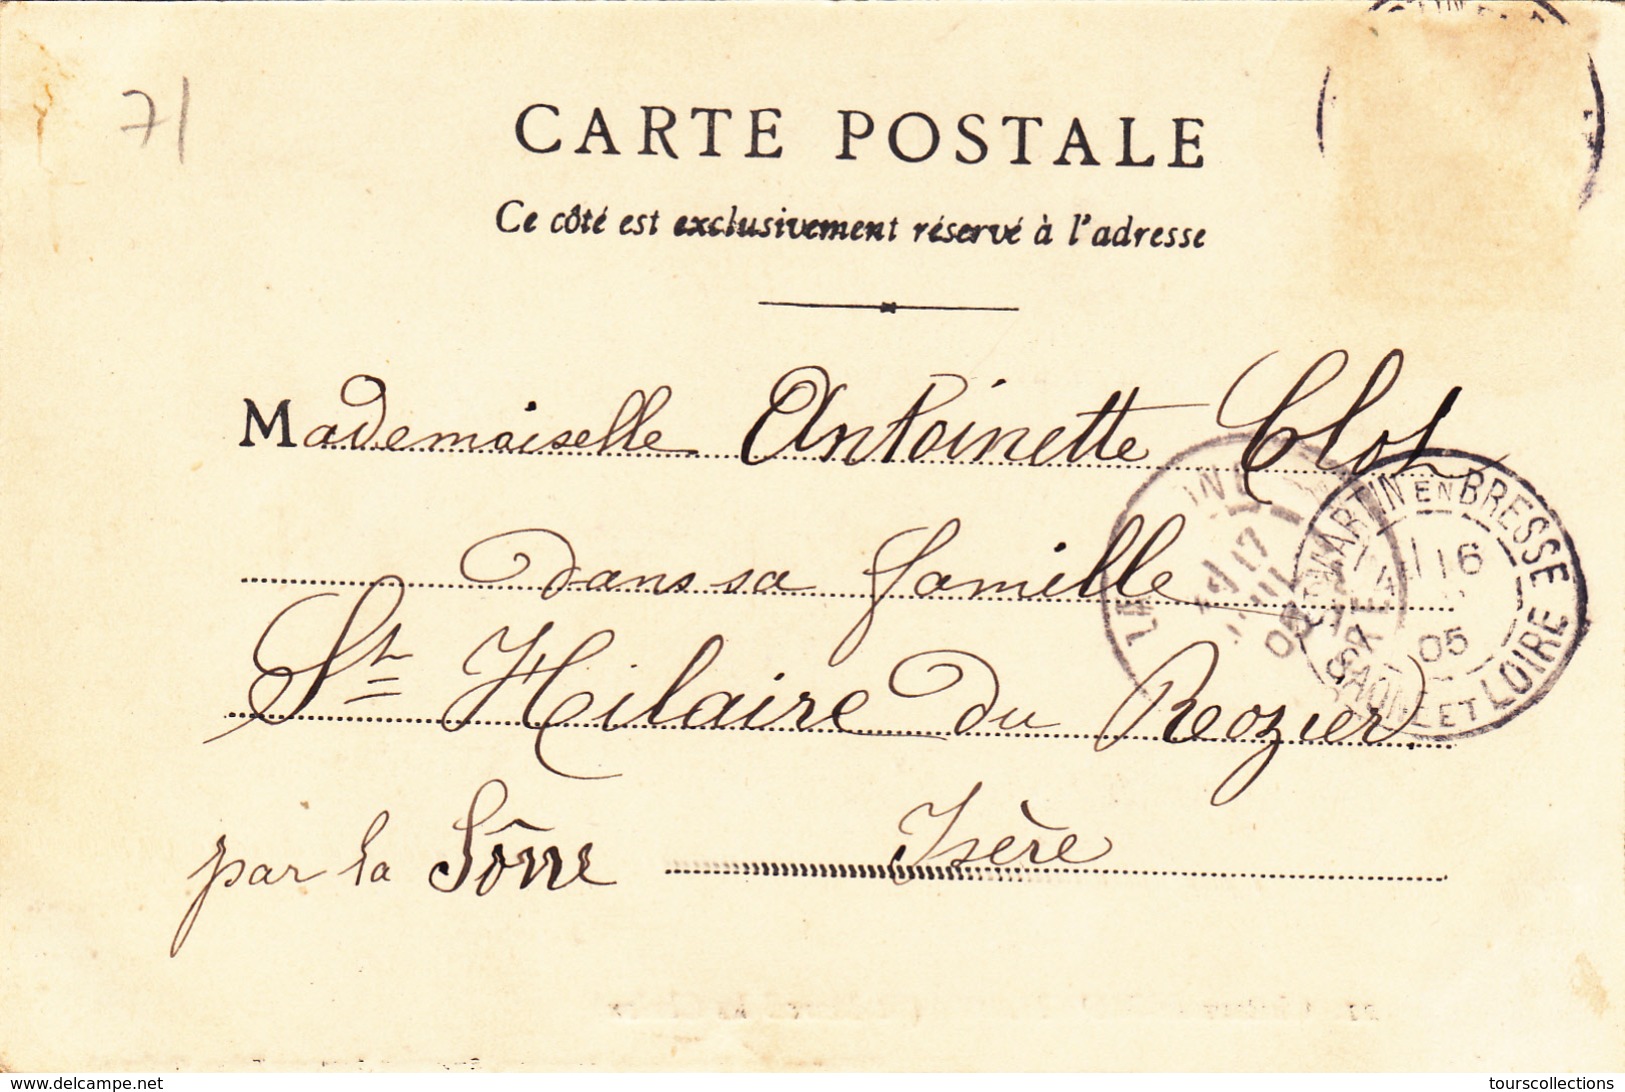 71
CARTE POSTALE
Ce côté est exclusivement réservé à l'adresse
Mademoiselle Antoinette Clot
dans sa famille
St Hilaire du Rozier
par la Sône Isère
MARTIN EN BRESSE
16
05
SAONE ET LOIRE
LA
17
05
ISERE
www.delcampe.net
tourscollections